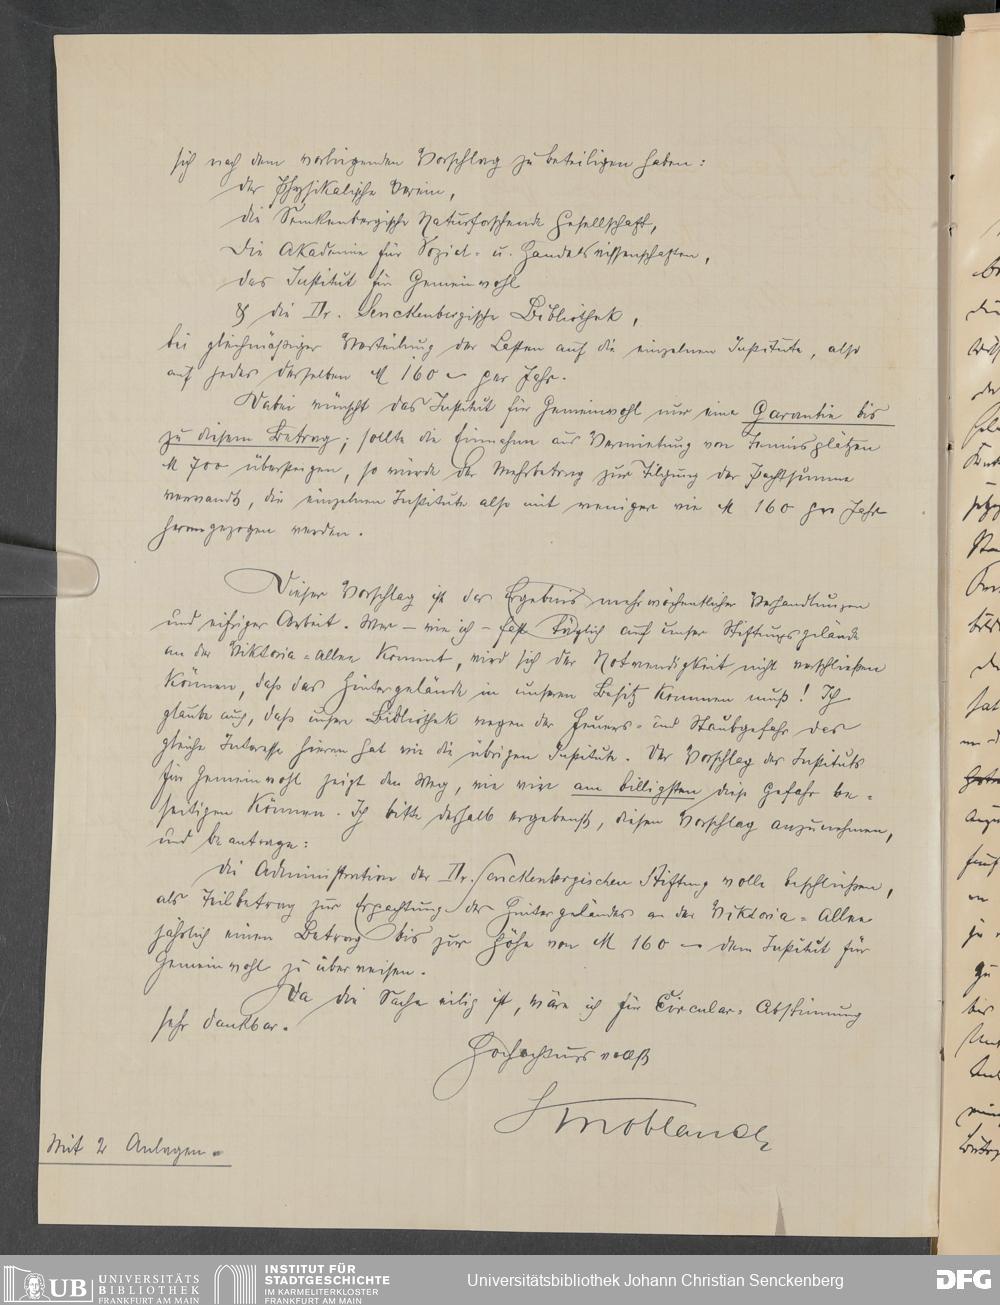 sich nach dem vorliegenden Vorschlag zu beteiligen haben:
der Physikalische Verein,
die Senckenbergische Naturforschende Gesellschaft,
die Akademie für Sozial- u. Handelswissenschaften,
das Institut für Gemeinwohl
& die Dr. Senckenbergische Bibliothek,
bei gleichmäßiger Verteilung der Lasten auf die einzelnen Institute, also
auf jedes derselben M 160 – per Jahr.
Dabei wünscht das Institut für Gemeinwohl nur eine Garantie bis
zu diesem Betrag; sollte die Einnahme aus Vermietung von Tennisplätzen
M 700 übersteigen, so würde der Mehrbetrag zur Tilgung der Pachtsumme
verwandt, die einzelnen Institute also mit weniger wie M 160 pro Jahr
herangezogen werden.
Dieser Vorschlag ist das Ergebnis mehrwöchentlicher Verhandlungen
und eifriger Arbeit. Wer – wie ich – fast täglich auf unser Stiftungsgelände
an der Viktoria-Allee kommt, wird sich der Notwendigkeit nicht verschließen
können, daß das Hintergelände in unseren Besitz kommen muß! Ich
glaube auch, daß unsere Bibliothek wegen der Feuers- und Staubgefahr das
gleiche Interesse hieran hat wie die übrigen Institute. Der Vorschlag des Instituts
für Gemeinwohl zeigt den Weg, wie wir am billigsten diese Gefahr be-
seitigen können. Ich bitte deshalb ergebenst, diesen Vorschlag anzunehmen,
und beantrage:
die Administration der Dr. Senckenbergischen Stiftung wolle beschließen,
als Teilbetrag zur Erpachtung des Hintergeländes an der Viktoria-Allee
jährlich einen Betrag bis zur Höhe von M 160 – dem Institut für
Gemeinwohl zu überweisen.
Da die Sache eilig ist, wäre ich für Circular-Abstimmung
sehr dankbar.
Hochachtungsvollst
Knoblauch
Mit 2 Anlagen.
UB UNIVERSITÄTS
BIBLIOTHEK
FRANKFURT AM MAIN
INSTITUT FÜR
STADTGESCHICHTE
IM KARMELITERKLOSTER
FRANKFURT AM MAIN
Universitätsbibliothek Johann Christian Senckenberg
DFG